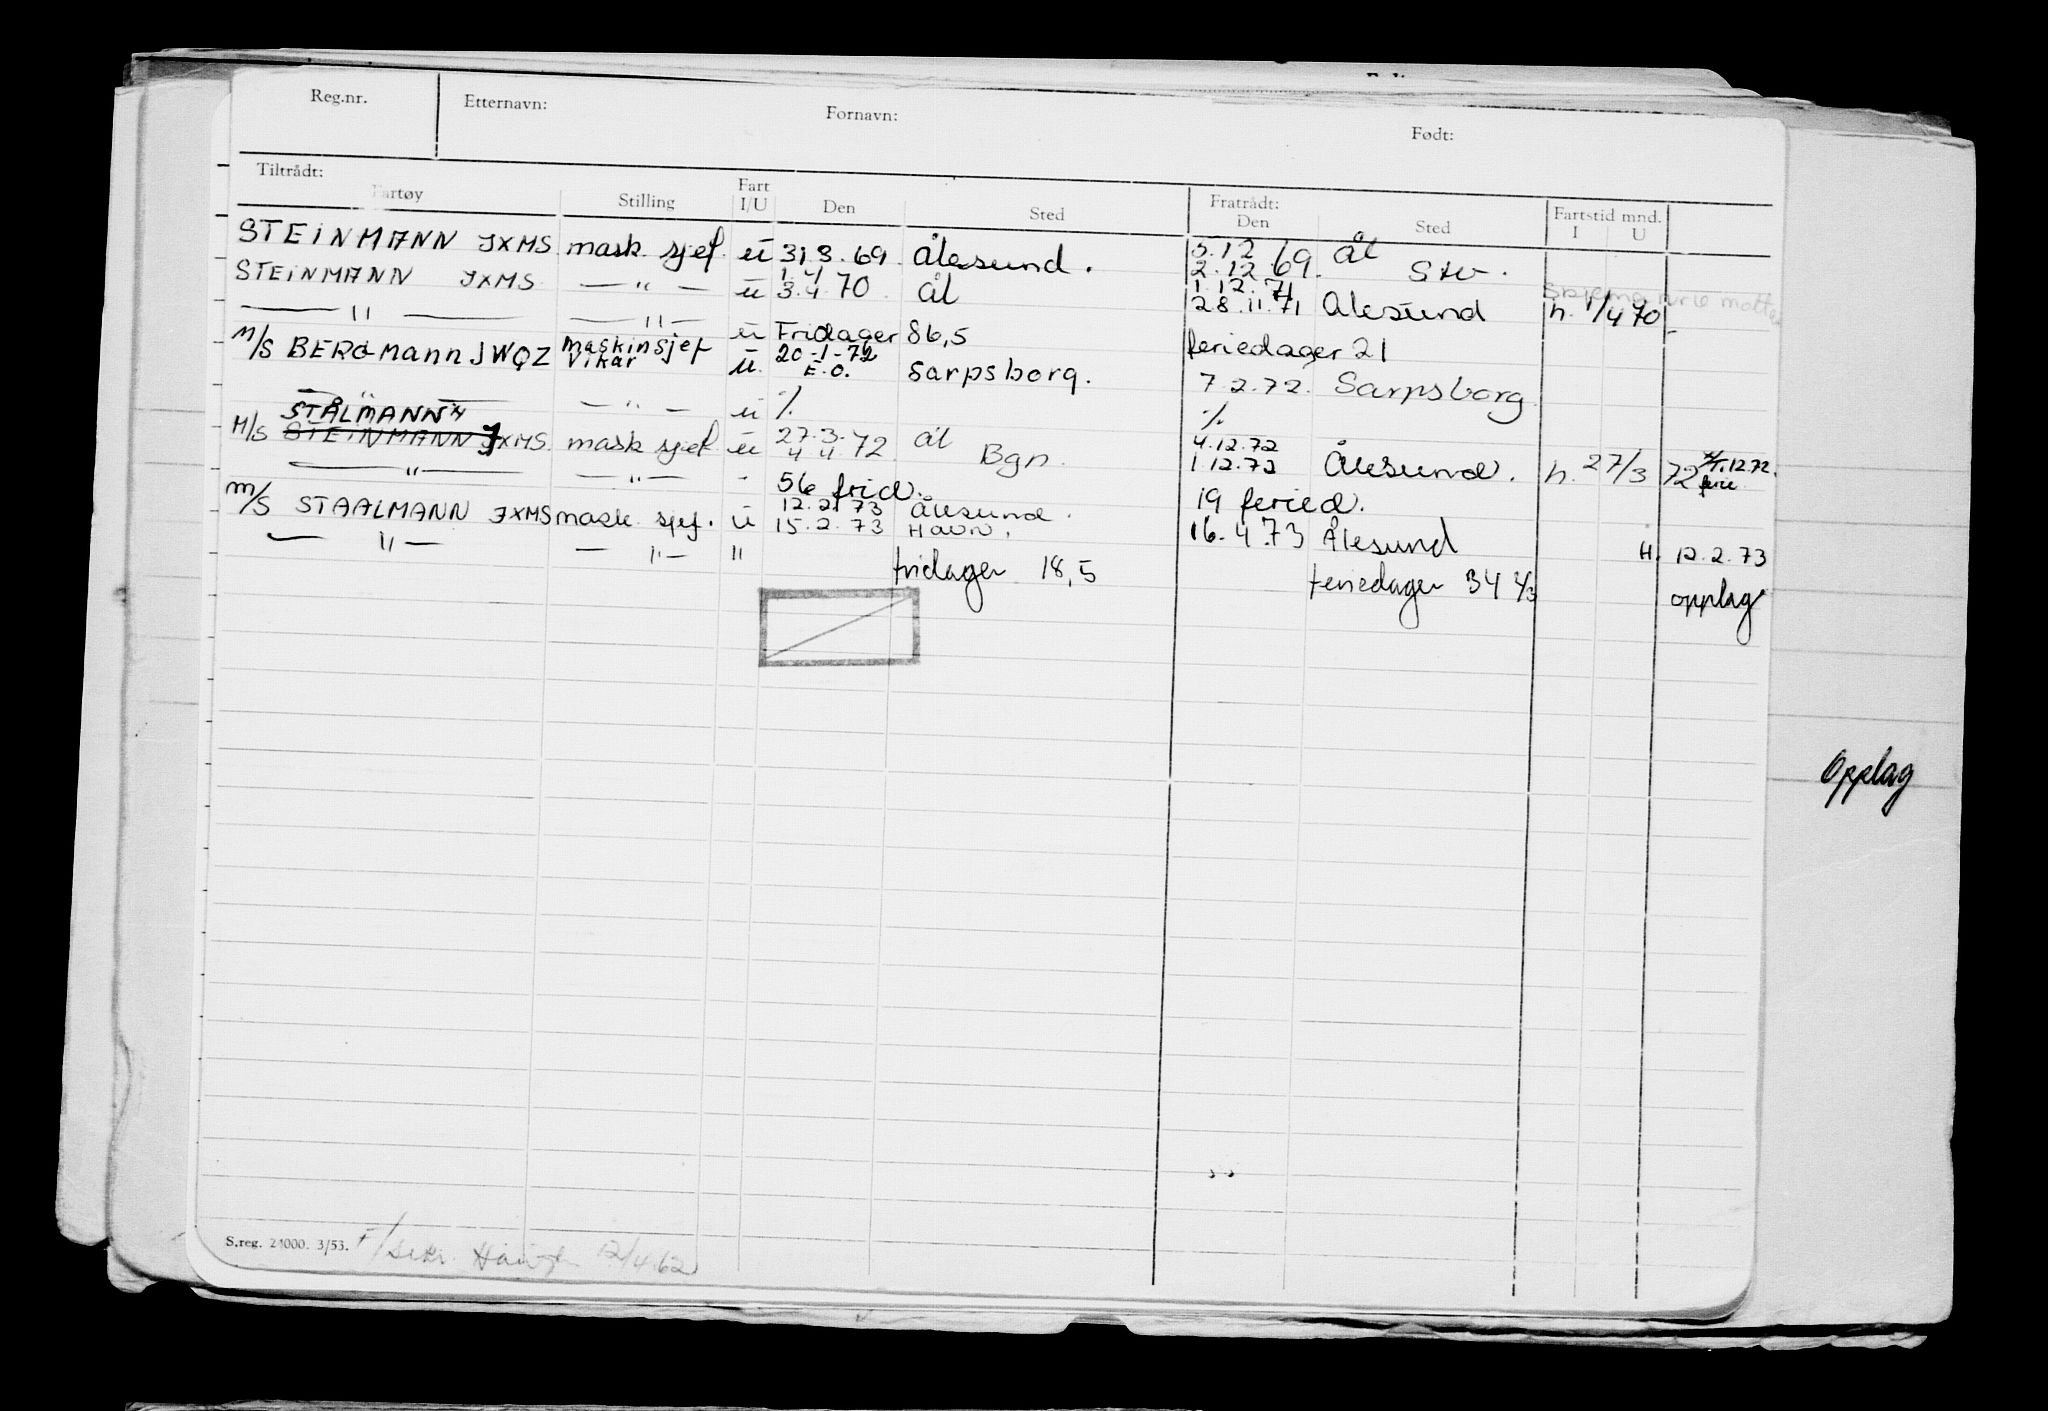 Reg.nr. Etternavn: Fornavn: Født:
Tiltrådt: Fratrådt:
Fartøy Stilling Fart I/U Den Sted Den Sted Fartstid mnd. I U
STEINMANN JXMS mask. sjef. u 31.3.69 Ålesund. 5.12.69 Ål
2.12.69. Stv.
STEINMANN JXMS — " — u 1.4.70 Ål 1.12.71
— " — — " — 3.4.70 28.11.71 Ålesund h. 1/4 70
u Fridager 86,5 feriedager 21
M/S BERGMANN JWQZ Maskinsjef Vikar u. 20-1-72 E.O. Sarpsborg. 7.2.72. Sarpsborg
— " — — " — u % %
STÅLMANN
M/S STEINMANN JXMS. mask sjef. u 27.3.72 Ål 4.12.72
4.4.72 Bgn. 1.12.72 Ålesund. h. 27/3 72 12.72. ferie
— " — — " — - 56 frid. 19 feried.
M/S STAALMANN JXMS mask. sjef. u 12.2.73 Ålesund.
15.2.73 Havn. 16.4.73 Ålesund H. 12.2.73
— " — — " — " fridager 18,5 feriedager 34 1/3 opplag
Opplag
S.reg. 24000. 3/53.